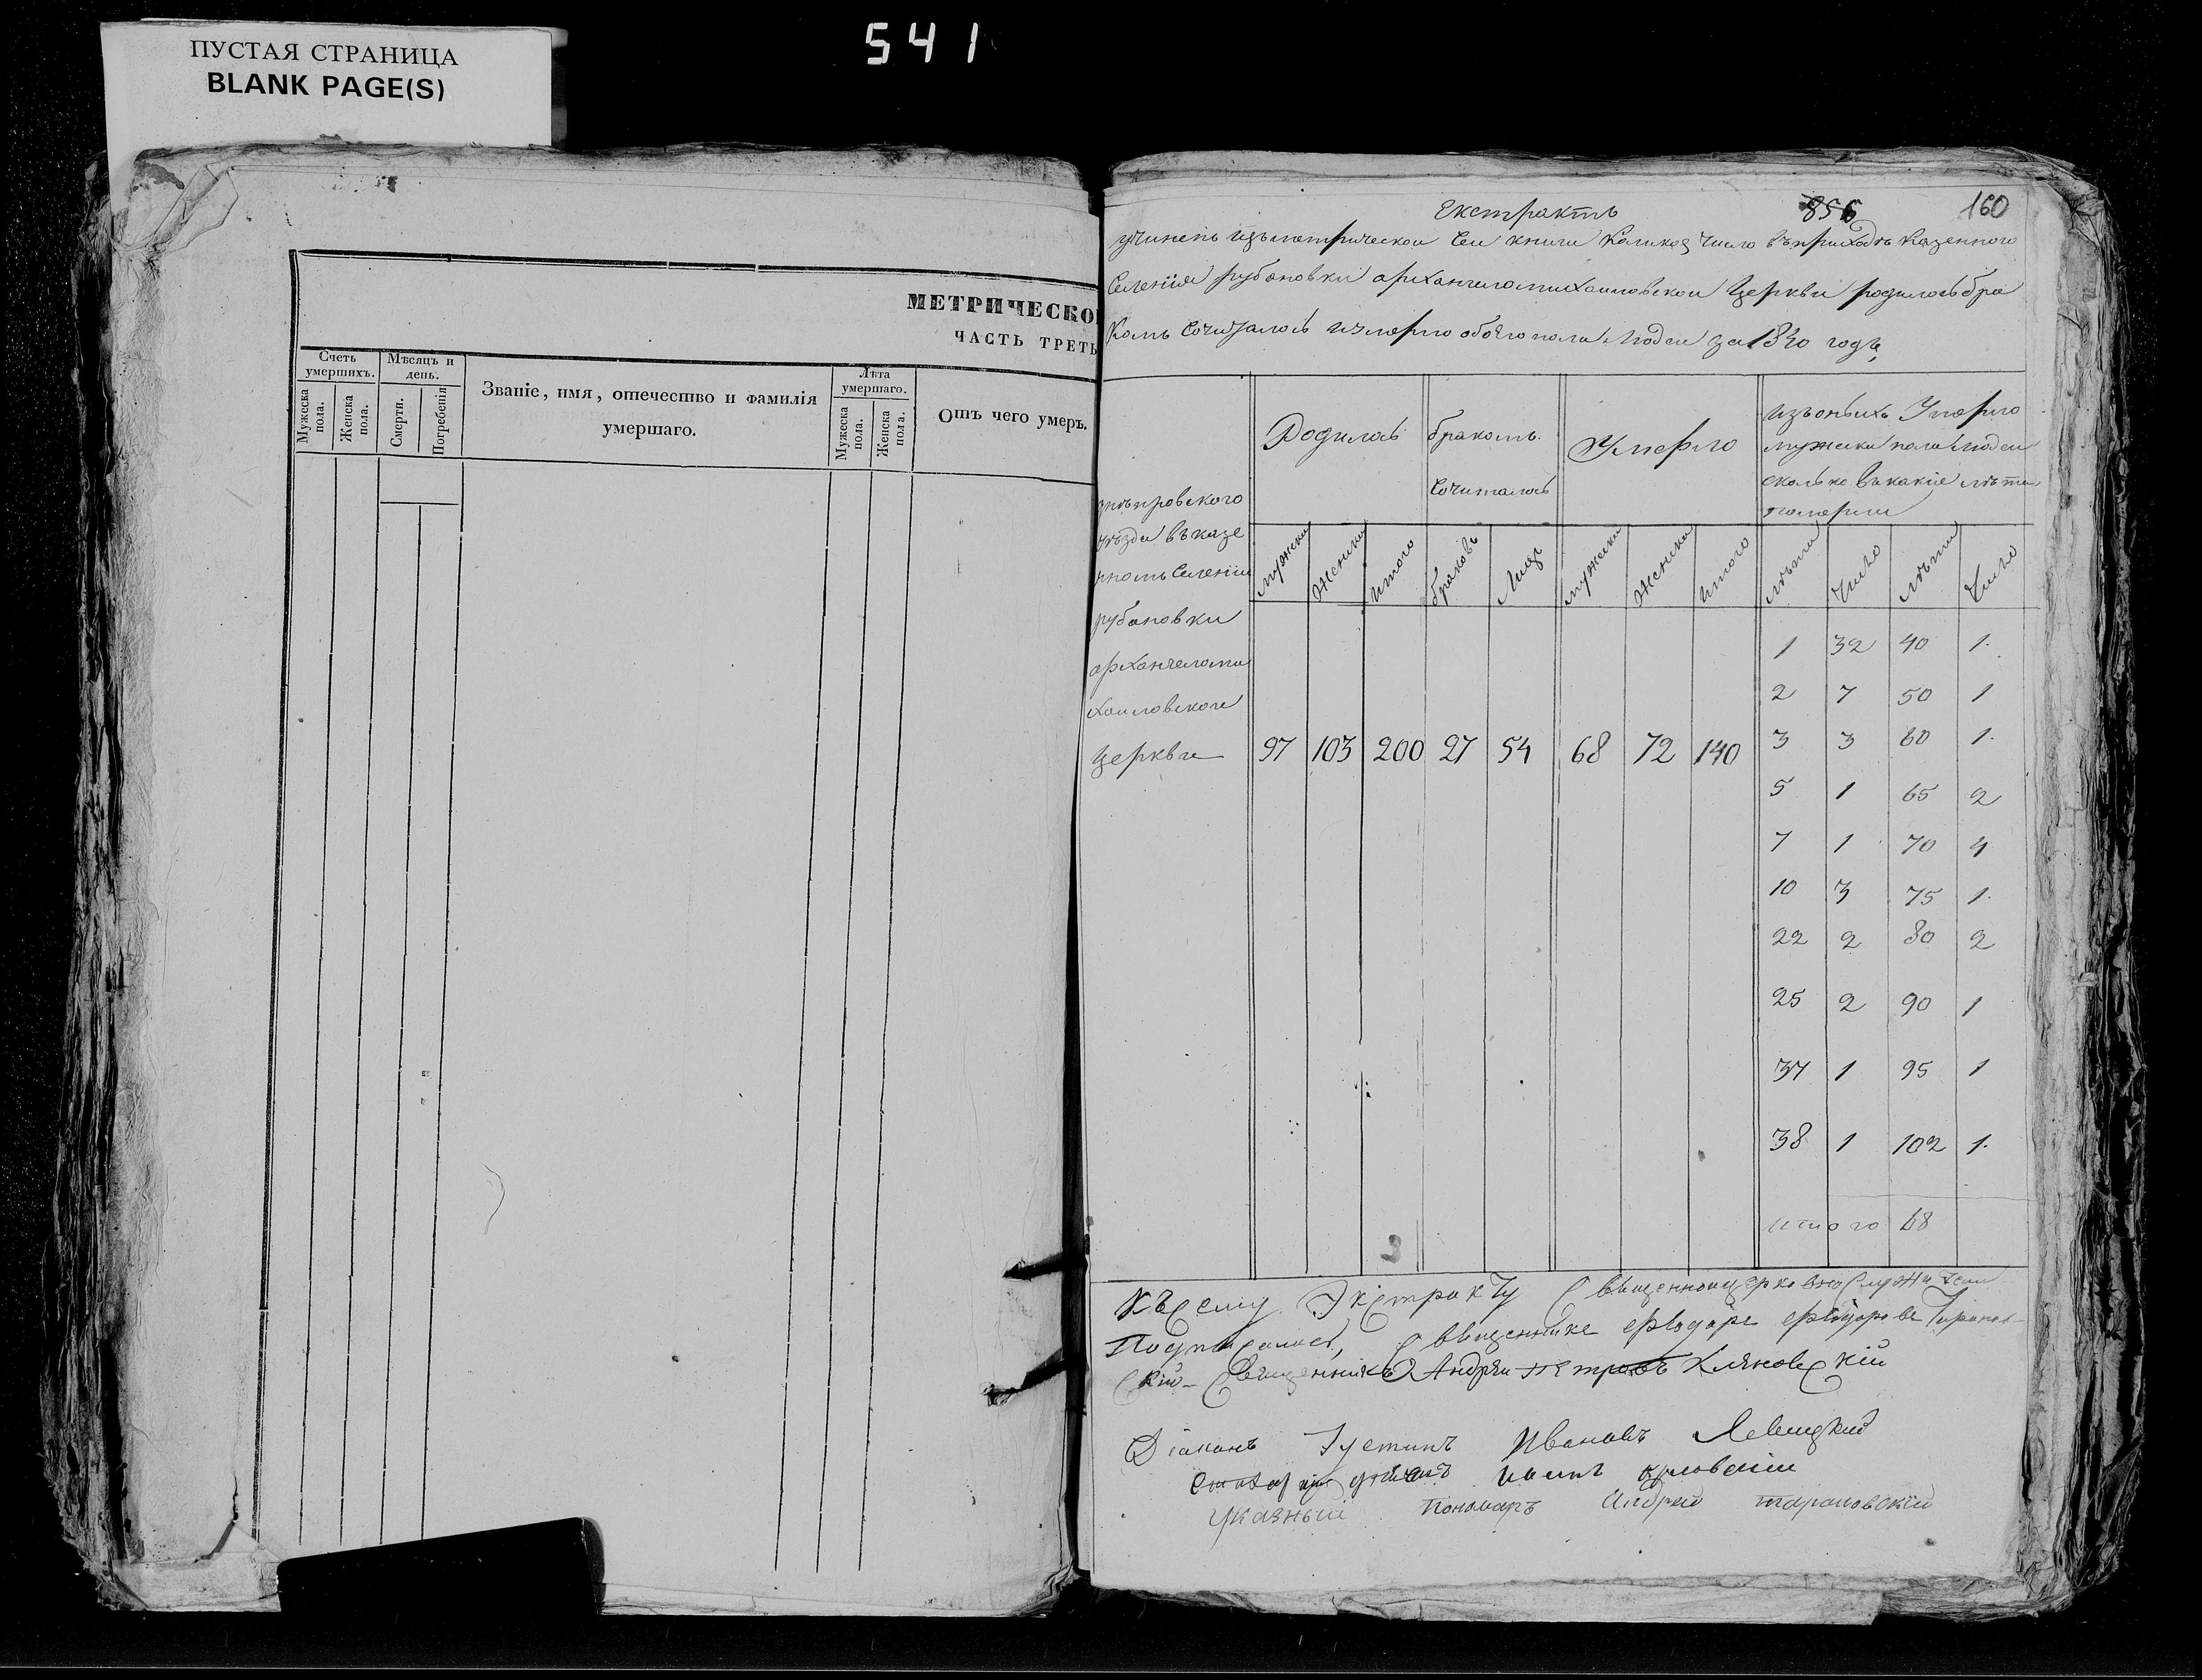 541
ПУСТАЯ СТРАНИЦА
BLANK PAGE(S)
МЕТРИЧЕСКО
ЧАСТЬ ТРЕТЬ
Счетъ умершихъ.
Мужеска пола.
Женска пола.
Мѣсяцъ и день.
Смерти.
Погребенія
Званіе, имя, отечество и фамилія
умершаго.
Лѣта умершаго.
Мужеска пола.
Женска пола.
Отъ чего умеръ.
856
160
Екстрактъ
учиненъ изъ метрической сеи книги Колико число въ приходѣ казенного
Селенія рубановки архангеломихаиловской Церкви родилось бра
комъ Сочиталось и умерло обоего пола людеи за 1840 годъ
Родилось
бракомъ
Сочиталось
Умерло
изъ оныхъ Умерло
мужеска пола людеи
сколько в какіе лѣта
померли
мужеска
женска
итого
браковъ
Лицъ
мужеска
женска
итого
лѣта
Число
лѣта
Число
уѣзда въ казе
нномъ Селеніи
рубановки
архангеломи
хаиловской
Церкви 97 103 200 27 54 68 72 140
1 32 40 1.
2 7 50 1
3 3 60 1.
5 1 65 2
7 1 70 4
10 3 75 1.
22 2 80 2
25 2 90 1
37 1 95 1
38 1 102 1.
итого 68
Къ сему Экстракту Священноцерковнослужители
Подписались,
Священникъ Андрей Петровъ
Діаконъ Іустинъ Ивановъ Левицкій
Орловскій
Указный Пономарь Андрей Тарановскій